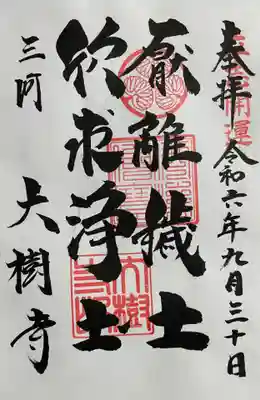 奉拝
開運
令和六年九月三十日
厭離穢土
欣求浄土
三河
大樹寺
大樹